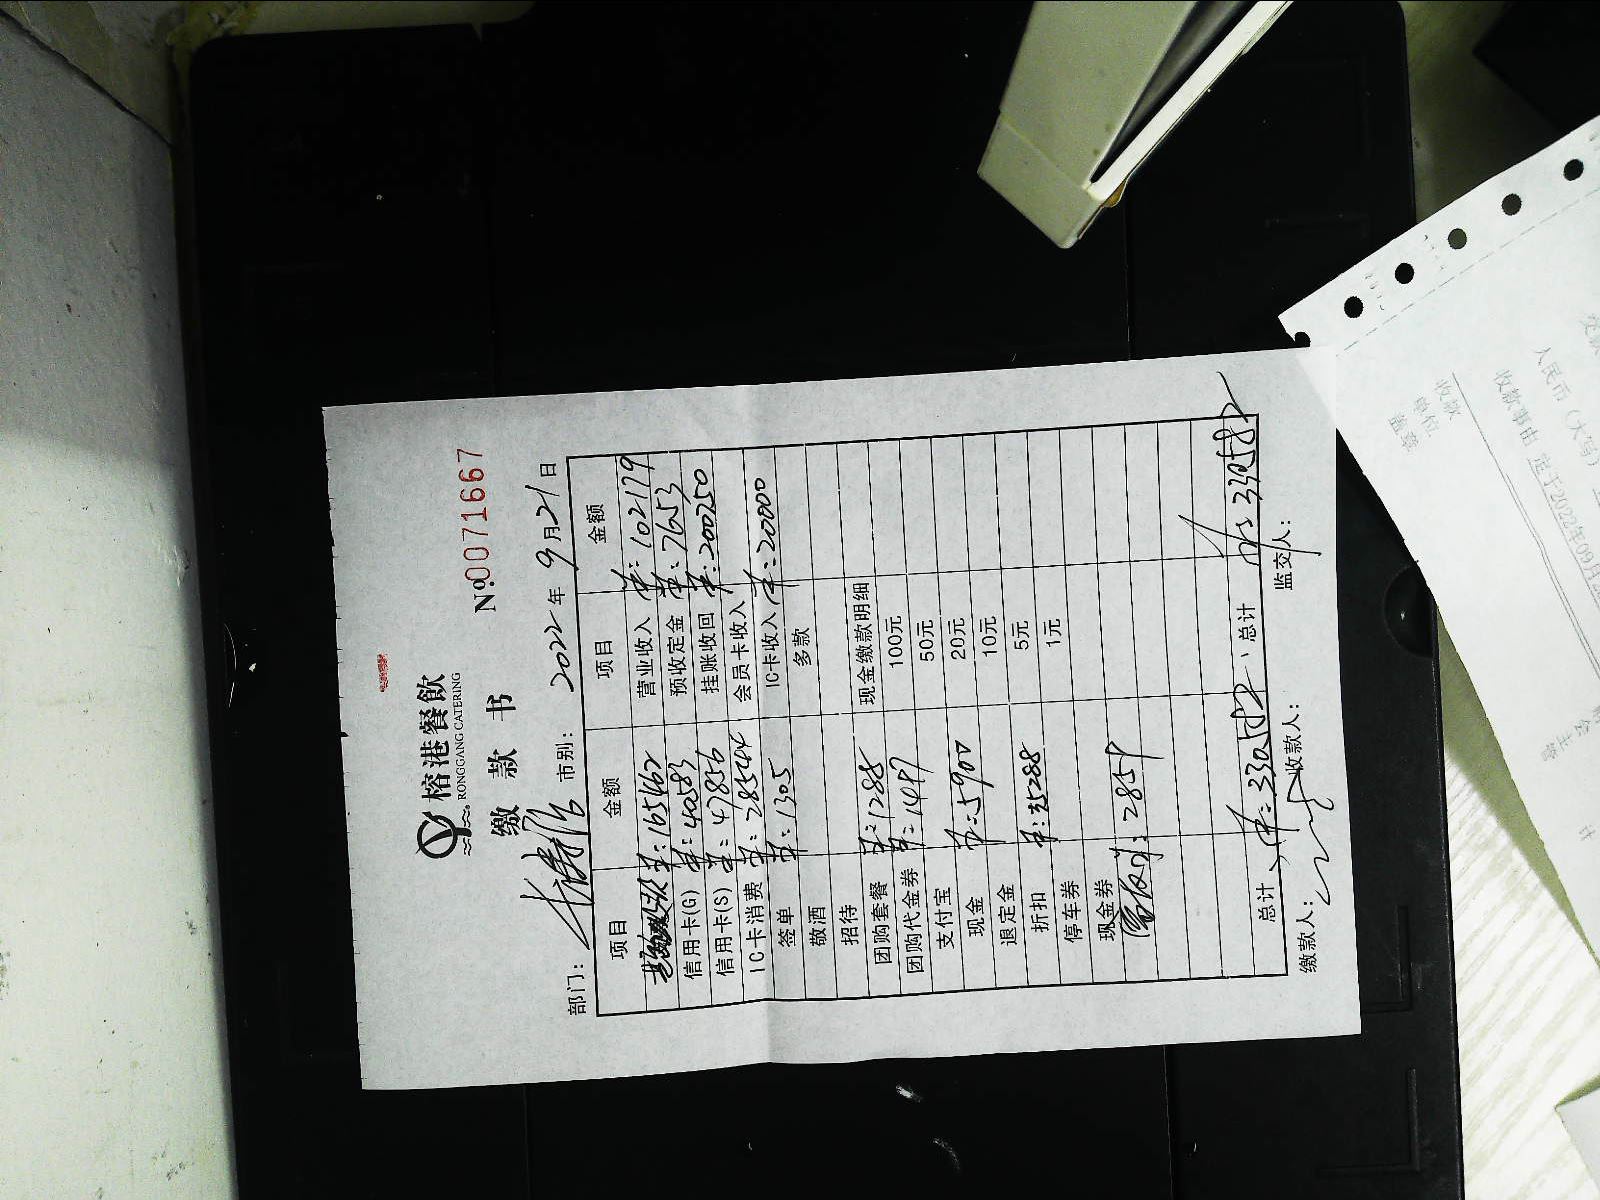 榕港餐飲
RONGGANG CATERING
缴 款 书
No.0071667
部门: 市别: 2022年 9月21日
项目 金额 项目 金额
¥:165162 营业收入 ¥:102179
信用卡(G) ¥:40583 预收定金 ¥:7653
信用卡(S) ¥:47856 挂账收回 ¥:200250
IC卡消费 ¥:28544 会员卡收入
签单 ¥:1305 IC卡收入 ¥:20000
敬酒 多款
招待
团购套餐 ¥:1288 现金缴款明细
团购代金券 ¥:1497 100元
支付宝 50元
现金 ¥:5900 20元
退定金 10元
折扣 ¥:35288 5元
停车券 1元
现金券
¥:2859
总计 总计
缴款人: 收款人: 监交人:
收款
单位
盖章
人民币(大写)
收款事由 定于2022年09月2